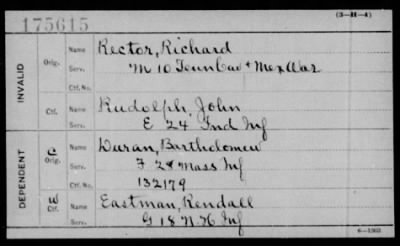 175615
(3—H—4)
INVALID
Orig. Name Rector, Richard
Serv. M 10 Tenn Cav & Mex War
Ctf. No.
Ctf. Name Rudolph, John
Serv. E 24 Ind Inf
DEPENDENT
C
Orig. Name Duran, Bartholomew
Serv. F 28 Mass Inf
Ctf. No. 132179
W
Ctf. Name Eastman, Kendall
Serv. G 18 N. H. Inf